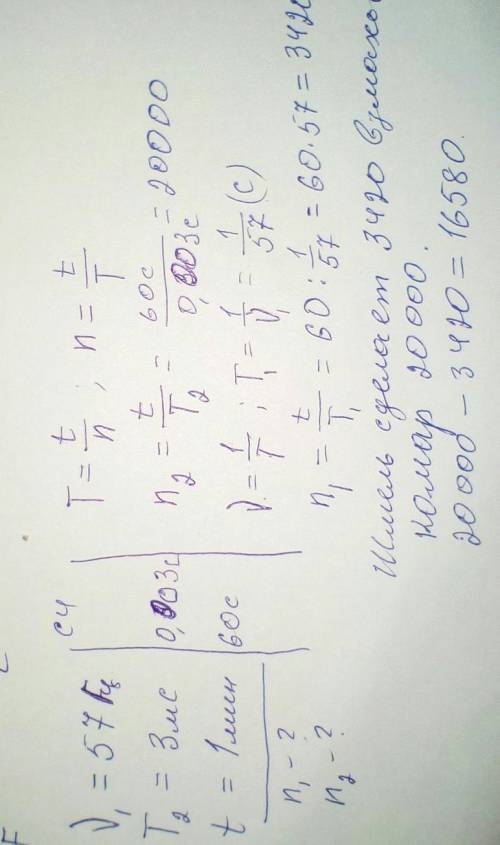 ν₁ = 57 Гц
T₂ = 3мс
t = 1мин
n₁ - ?
n₂ - ?
СИ
0,003с
60с
T = t/n ; n = t/T
n₂ = t/T₂ = 60с/0,003с = 20000
ν = 1/T ; T₁ = 1/ν₁ = 1/57 (с)
n₁ = t/T₁ = 60 : 1/57 = 60·57 = 342
Шмель сделает 3420
комар 20000.
20000 - 3420 = 16580.